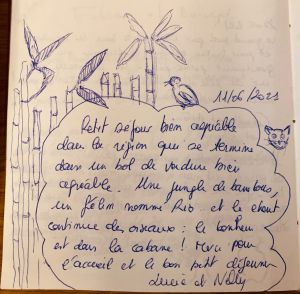 11/06/2021
Petit séjour bien agréable
dans la région qui se termine
dans un bol de verdure bien
agréable. Une jungle de bambous,
un félin nommé Rio et le chant
continue des oiseaux : le bonheur
est dans la cabane ! Merci pour
l'accueil et le bon petit déjeuner
Lucie et